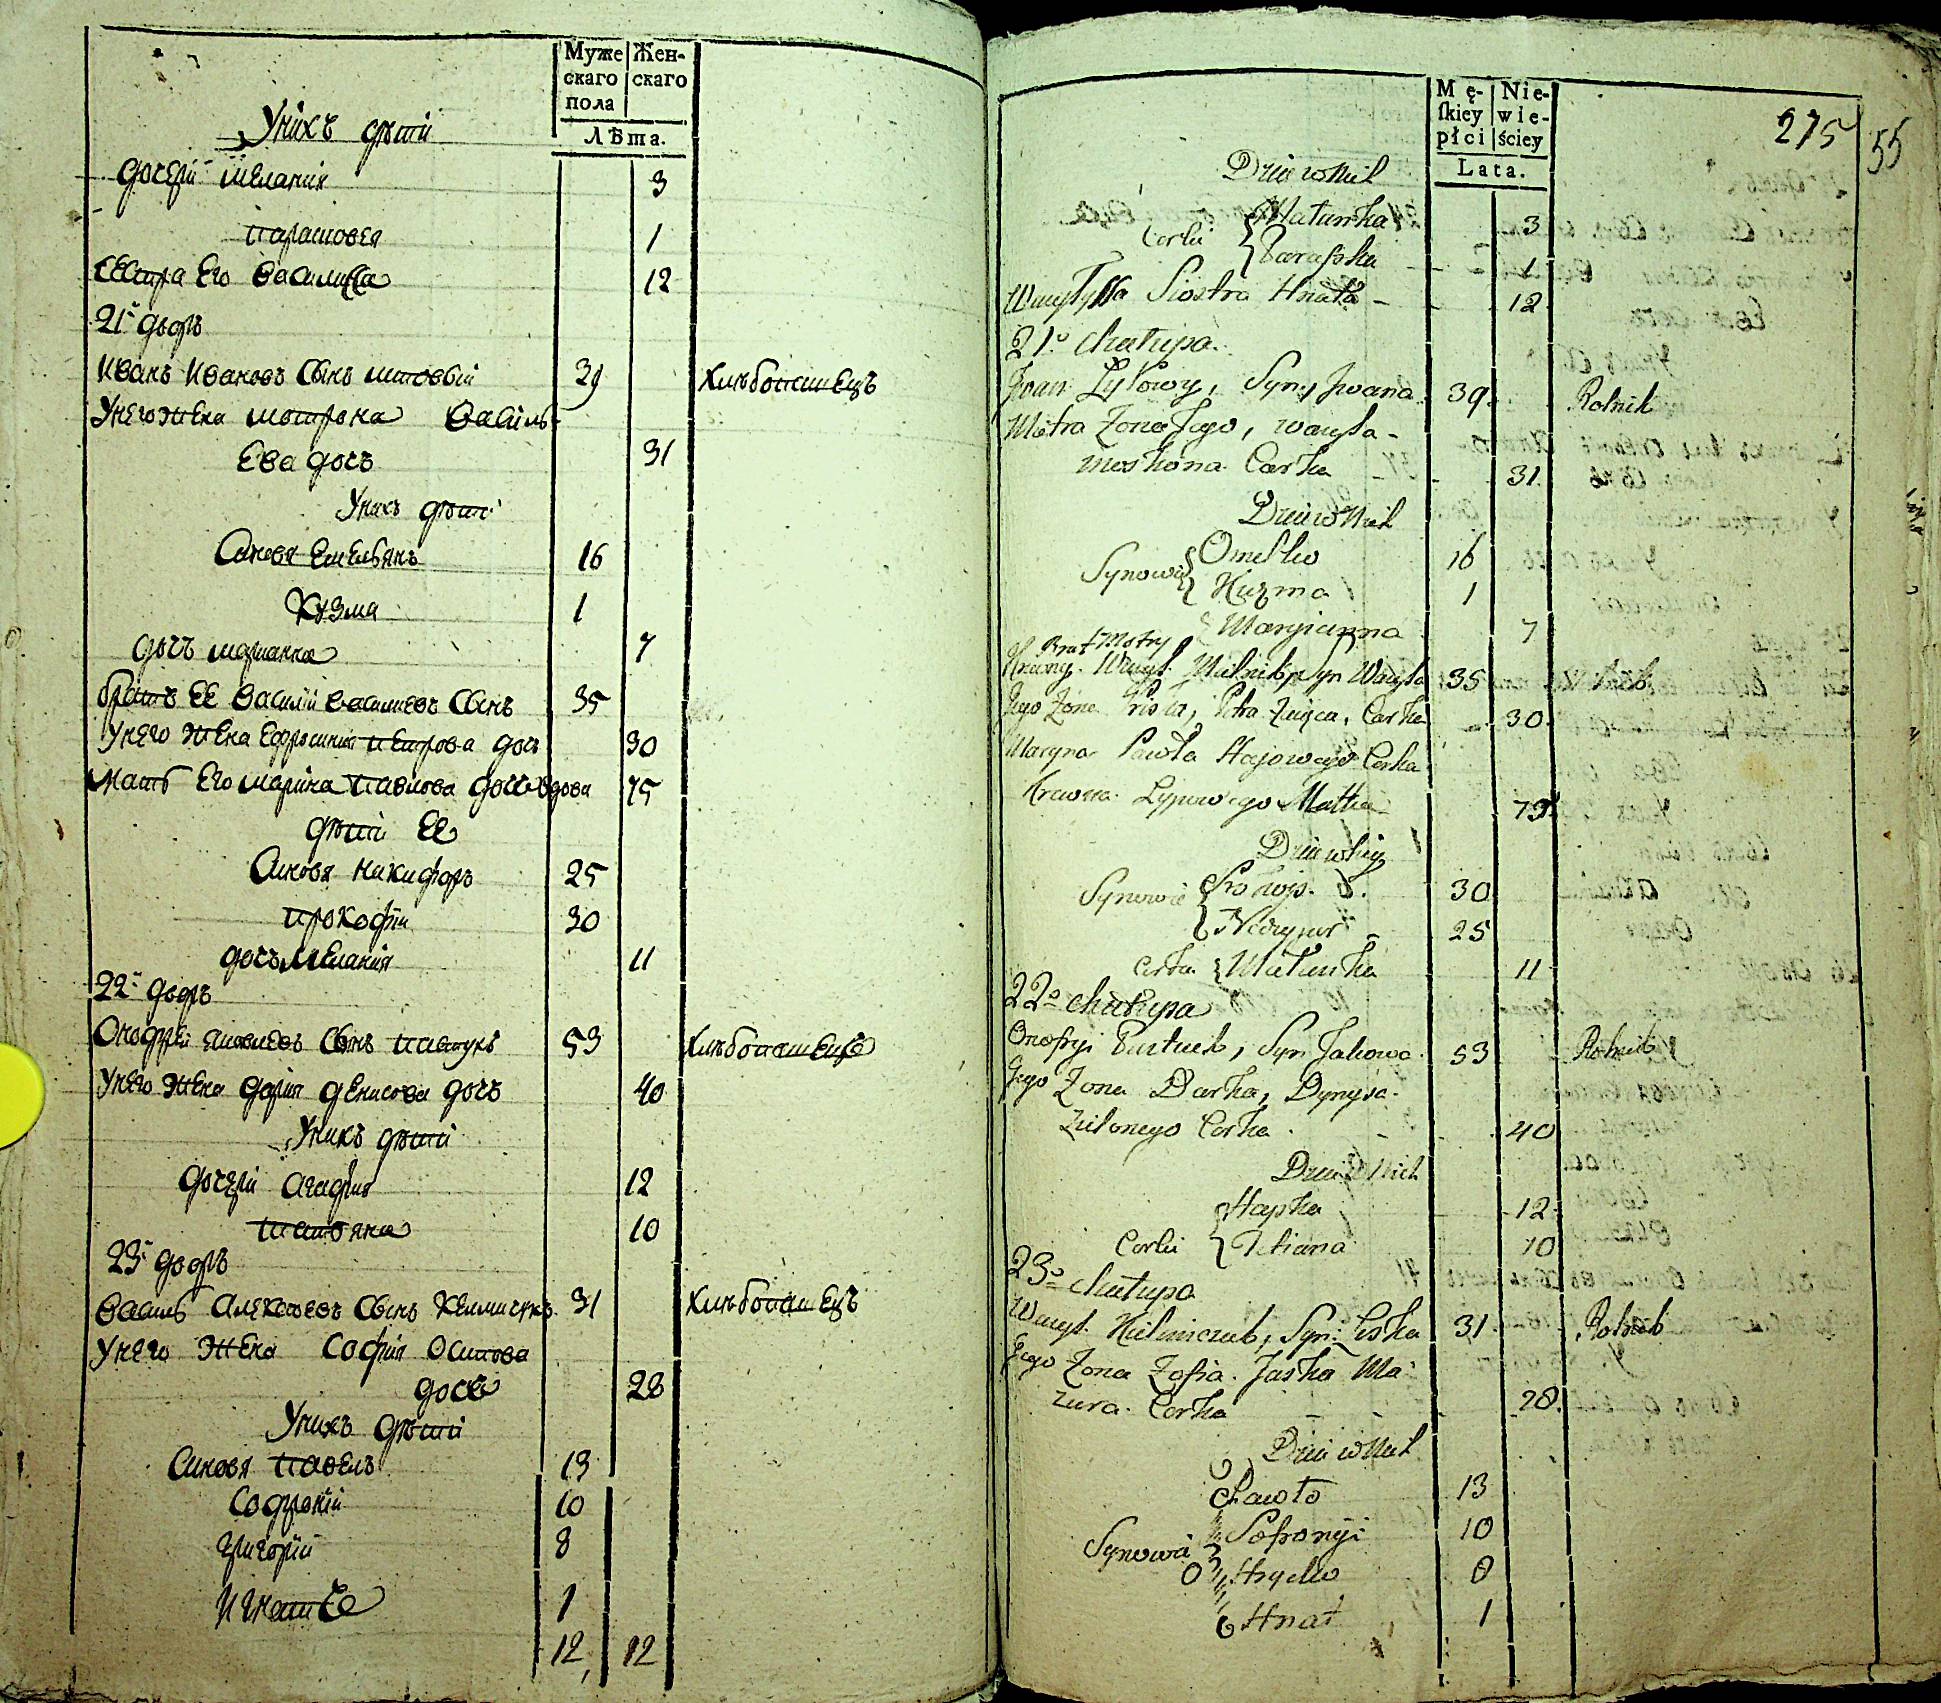 Муже Жен-
скаго скаго
пола
Лѣта.
Унихъ дѣти
дочери Мелания 3
Парасковея 1
Сестра Его Василиса 12
21й дворъ
Иванъ Ивановъ Сынъ 39 Хлѣбопашецъ
Унего Жена Мотрона Василь-
Ева дочь 31
Унихъ дѣти
Синовя Емельянъ 16
Кузма 1
дочь Марианна 7
братъ Ее Василий Васильевъ Сынъ 35
Унего Жена Ефросиния Петрова дочь 30
Мать Его Марина Павлова дочь вдова 75
дѣти Ее
Синовя Никифоръ 25
Прокофий 30
дочь Мелания 11
22й дворъ
Онофрей Яковлевъ Сынъ Пастухъ 53 Хлѣбопашецъ
Унего Жена Дария Денисова дочь 40
Унихъ дѣти
дочери Агафия 12
Татьяна 10
23й дворъ
Василь Алексѣевъ Сынъ 31 Хлѣбопашецъ
Унего Жена София Осипова
дочь 28
Унихъ дѣти
Синовя Павелъ 13
Софроний 10
Григорий 8
Игнатъ 1
12 12
275 55
Mę- Nie-
skiey wie-
płci ściey
Lata.
Dzieci w Nich
Corki Małanka 3
Paraska 1
Wasylyssa Siostra Hnata 12
21o Chałupa.
Jwan Syn Jwana 39 Rolnik
Motra Zona Jego, Wasyla
Corka 31
Dzieci w Nich
Synowie Omelko 16
Kuzma 1
Maryanna 7
Brat Motry
Wasyl Syn Wasyla 35
Jego Zona Petra Corka 30
Maryna Pawła Corka
Matka 75
Dzieci w Niey
Synowie Prokop. 30
Nikypor 25
Corka Małanka 11
22o Chałupa
Onofryi Pastuch, Syn Jakowa 53 Rolnik
Jego Zona Darka, Dynysa
Zielonego Corka 40
Dzieci w Nich
Hapka 12
Corki Tetiana 10
23o Chałupa
Wasyl Kielmiczuk, Syn 31 Rolnik
Jego Zona Zofia. Jaska Ma-
zura. Corka 28
Dzieci w Nich
Pawło 13
Sofronyi 10
Synowie Hrycko 8
Hnat 1